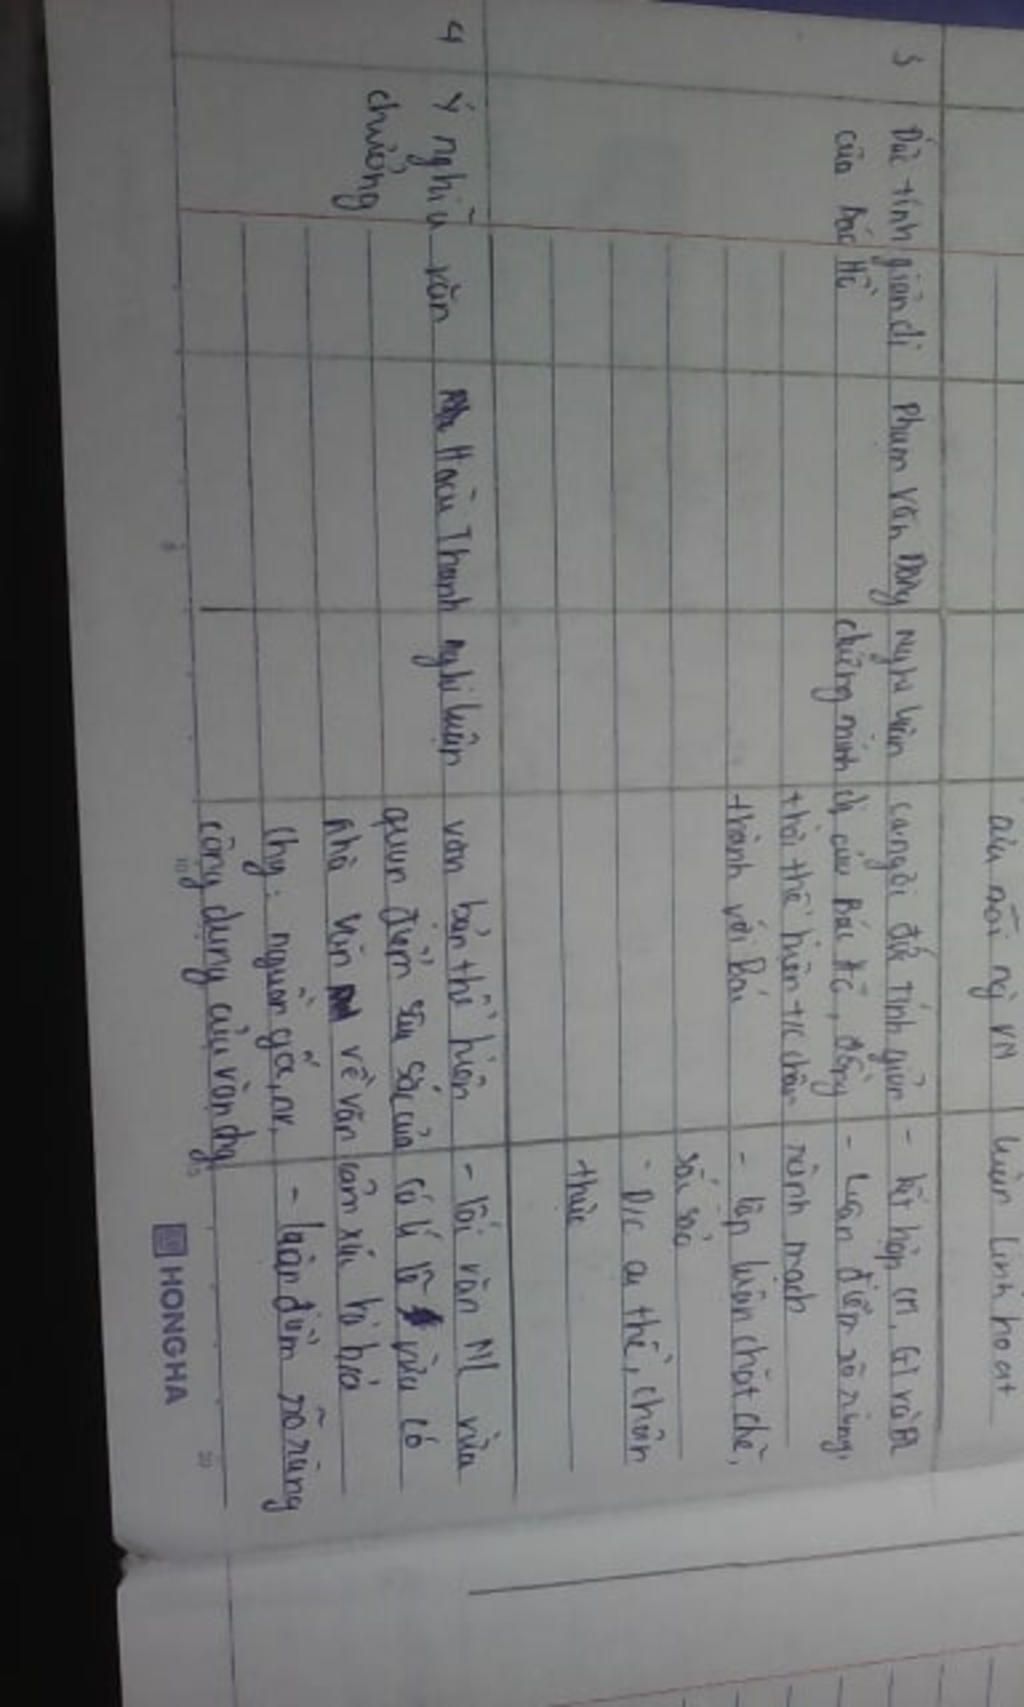 của nối ng VN luận linh hoạt
3 Đức tính giản dị Phạm Văn Đồng Nghị luận ca ngợi đức tính giản - kết hợp CM, GT và BL
của Bác Hồ chứng minh dị của Bác Hồ, đồng - Luận điểm rõ ràng,
thời thể hiện t/c chân rành mạch
thành với Bác - lập luận chặt chẽ,
sâu sắc
- D/c cụ thể, chân
thực
4 Ý nghĩa văn Hoài Thanh nghị luận văn bản thể hiện - lối văn NL vừa
chương quan điểm sâu sắc của có lí lẽ vừa có
nhà văn về văn cảm xúc h/a
chg: nguồn gốc, nv, - luận điểm rõ ràng
công dụng của văn chg
HONGHA